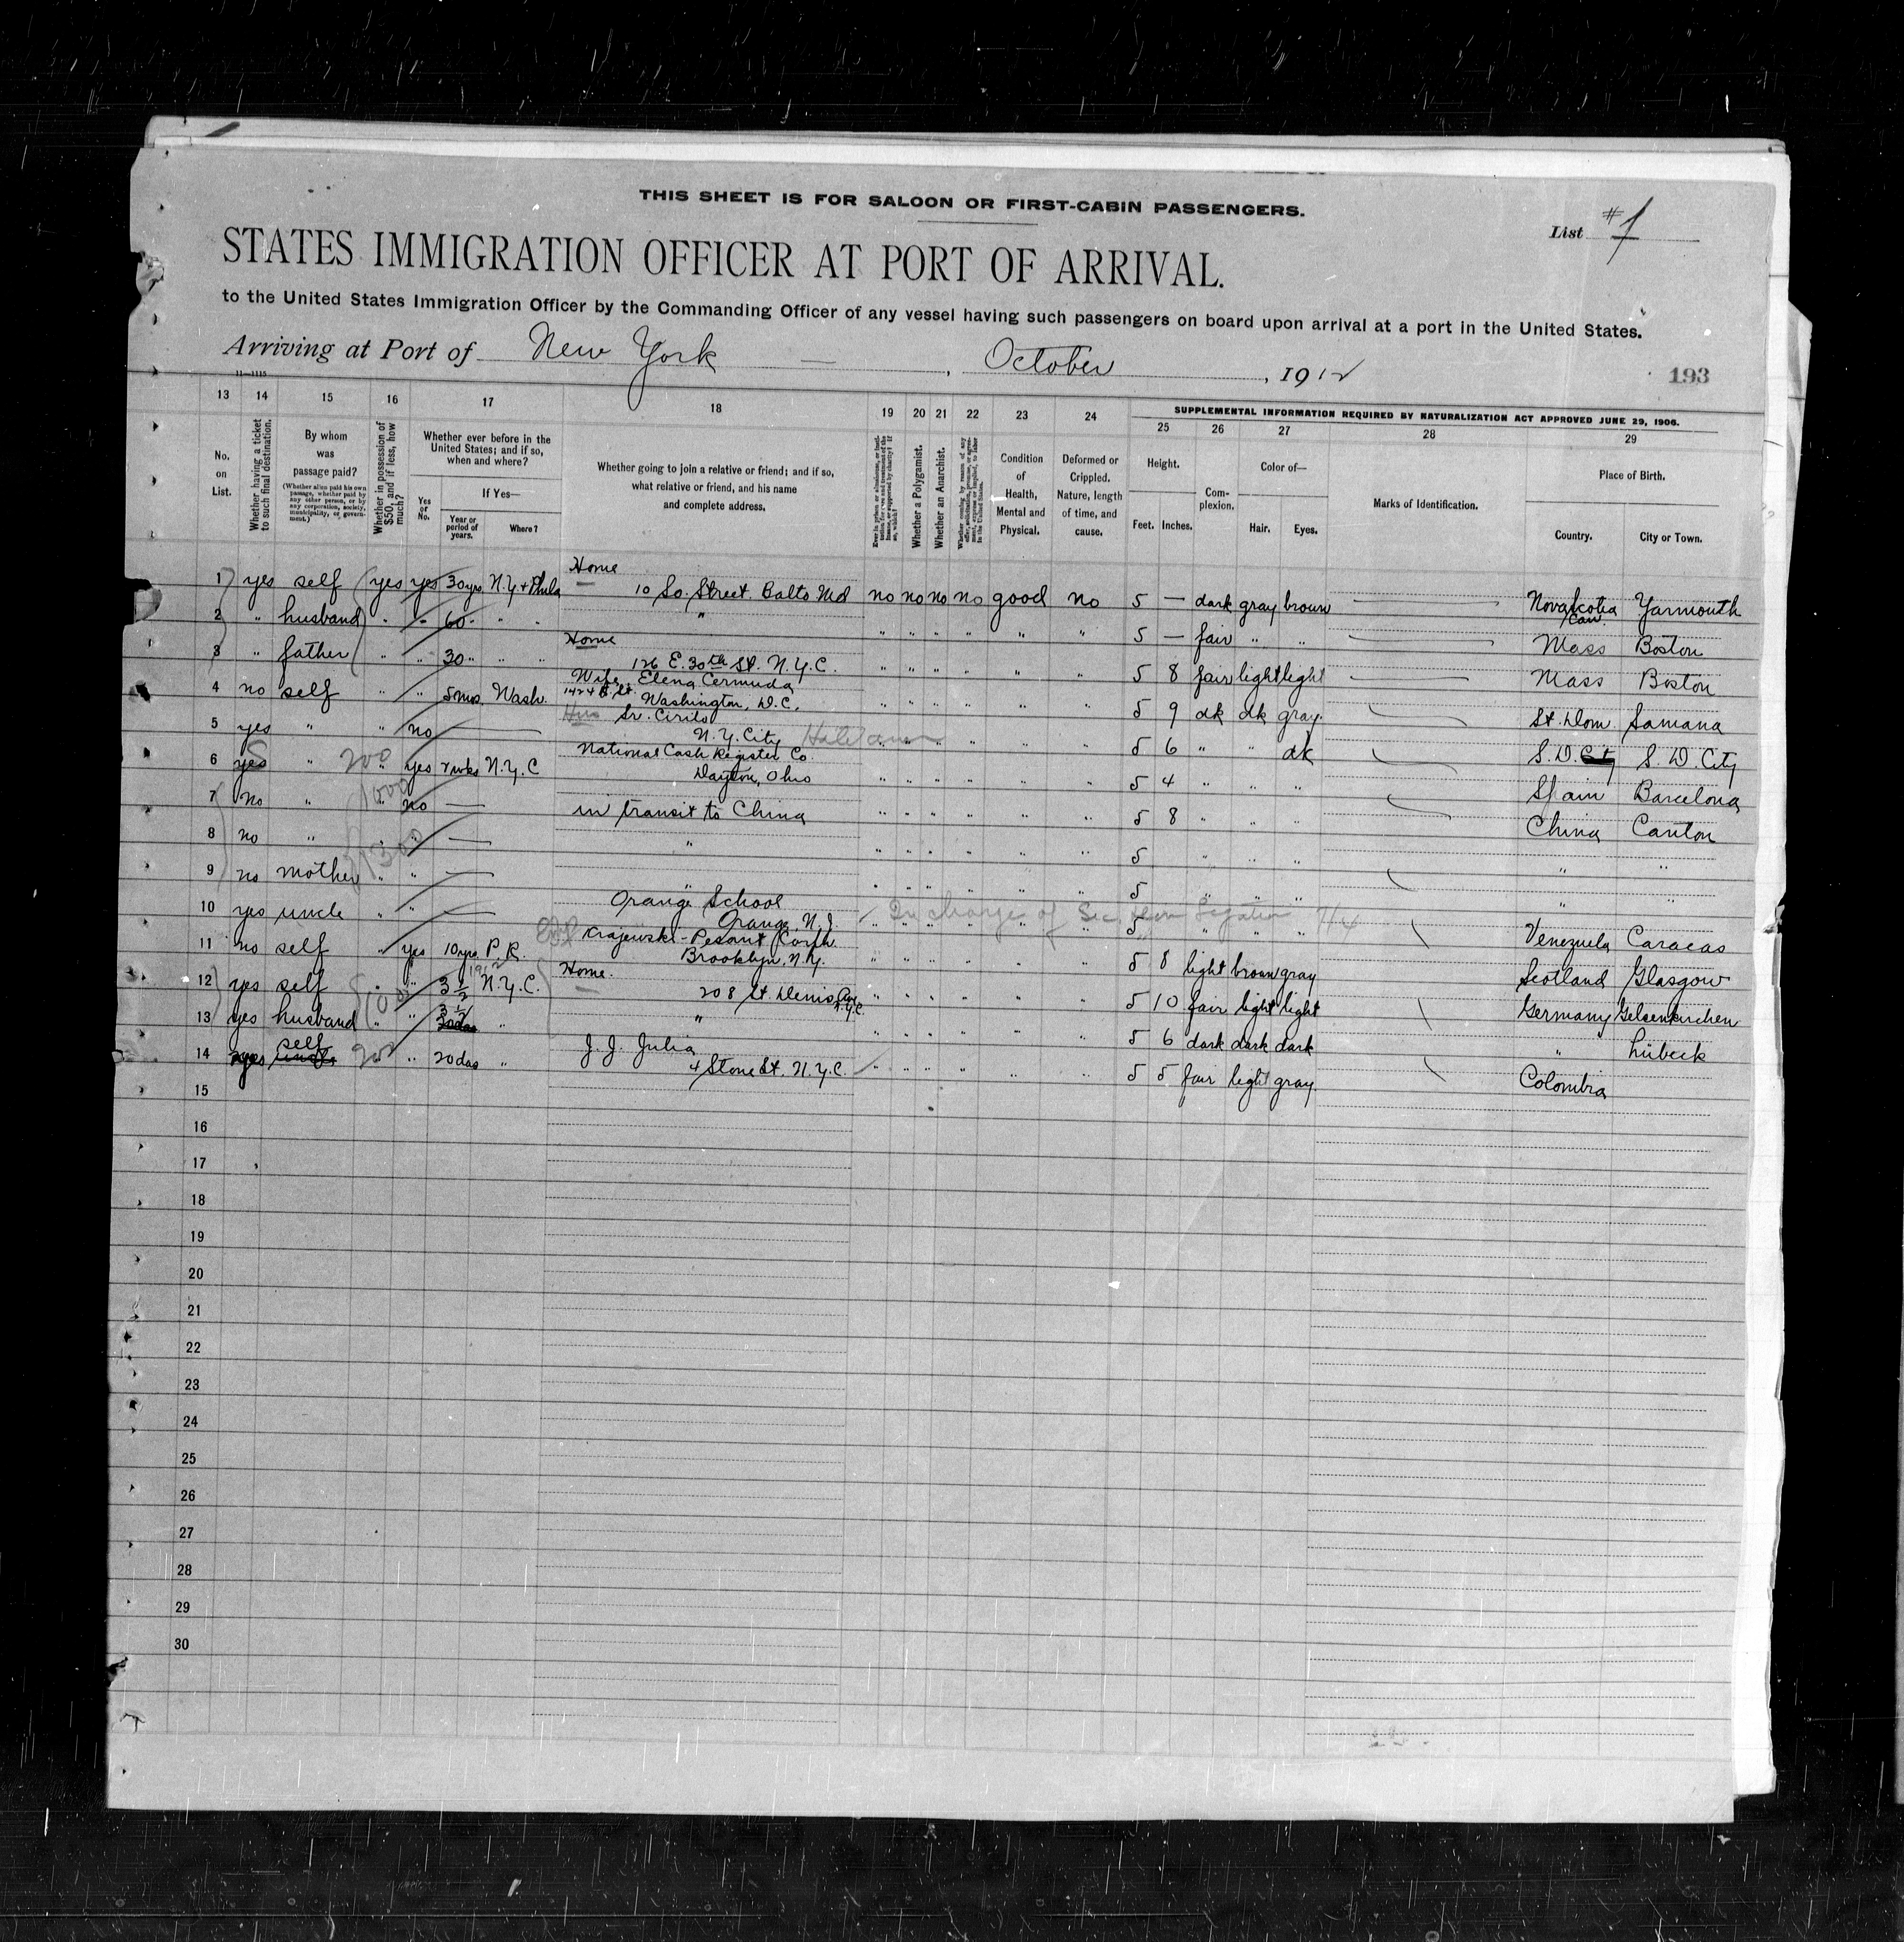 THIS SHEET IS FOR SALOON OR FIRST-CABIN PASSENGERS.
List #1
STATES IMMIGRATION OFFICER AT PORT OF ARRIVAL.
to the United States Immigration Officer by the Commanding Officer of any vessel having such passengers on board upon arrival at a port in the United States.
Arriving at Port of New York, October, 1912
11—1115
193
13 14 15 16 17 18 19 20 21 22 23 24
SUPPLEMENTAL INFORMATION REQUIRED BY NATURALIZATION ACT APPROVED JUNE 29, 1906.
25 26 27 28 29
No. on List.
Whether having a ticket to such final destination.
By whom was passage paid?
(Whether alien paid his own passage, whether paid by any other person, or by any corporation, society, municipality, or government.)
Whether in possession of $50, and if less, how much?
Whether ever before in the United States; and if so, when and where?
Yes or No.
If Yes—
Year or period of years.
Where?
Whether going to join a relative or friend; and if so, what relative or friend, and his name and complete address.
Whether a Polygamist.
Whether an Anarchist.
Condition of Health, Mental and Physical.
Deformed or Crippled. Nature, length of time, and cause.
Height.
Feet. Inches.
Complexion.
Color of—
Hair. Eyes.
Marks of Identification.
Place of Birth.
Country. City or Town.
Home
1 yes self yes yes 30 yrs N.Y. + Phila 10 So. Street. Balto Md no no no no good no 5 — dark gray brown — Nova Scotia Can. Yarmouth
2 " husband " " 60 " " " " " " " " " 5 — fair " " — Mass Boston
Home
3 " father " " 30 " " " 126 E. 30th St. N.Y.C. " " " " " " 5 8 fair light light — Mass Boston
Wife Elena Cermuda
4 no self " " 5 mos. Wash. 1424 St. Washington, D.C. " " " " " " 5 9 dk dk gray St. Dom Samana
Sr. Cirilo
5 yes " no — N.Y. City " " " " " 5 6 " " dk S. D. City S. D. City
National Cash Register Co.
6 yes " 200 " yes 2 wks N.Y.C Dayton, Ohio " " " " " " 5 4 " " " Spain Barcelona
7 no " 1000 " no — in transit to China " " " " " " 5 8 " " " China Canton
8 no " " " — " " " " " " " 5 " " " " "
9 no mother " " — " " " " " " " 5 " " " " "
Orange School
10 yes uncle " " — Orange, N.J. In charge of Sec Legation " " " " " " 5 " " " Venezuela Caracas
Krajewski-Pesant Corp.
11 no self " yes 10 yrs P. R. Brooklyn, N.Y. " " " " " " 5 8 light brown gray Scotland Glasgow
Home.
12 yes self " " 3 1/2 1912 N.Y.C. 208 St. Denis Ave N.Y.C. " " " " " " 5 10 fair light light Germany Gelsenkirchen
13 yes husband " " 3 1/2 " " " " " " " " 5 6 dark dark dark " Lübeck
J. J. Julia
14 yes self 200 " 20 das " 4 Stone St. N.Y.C. " " " " " " 5 5 fair light gray. Colombia
15
16
17
18
19
20
21
22
23
24
25
26
27
28
29
30